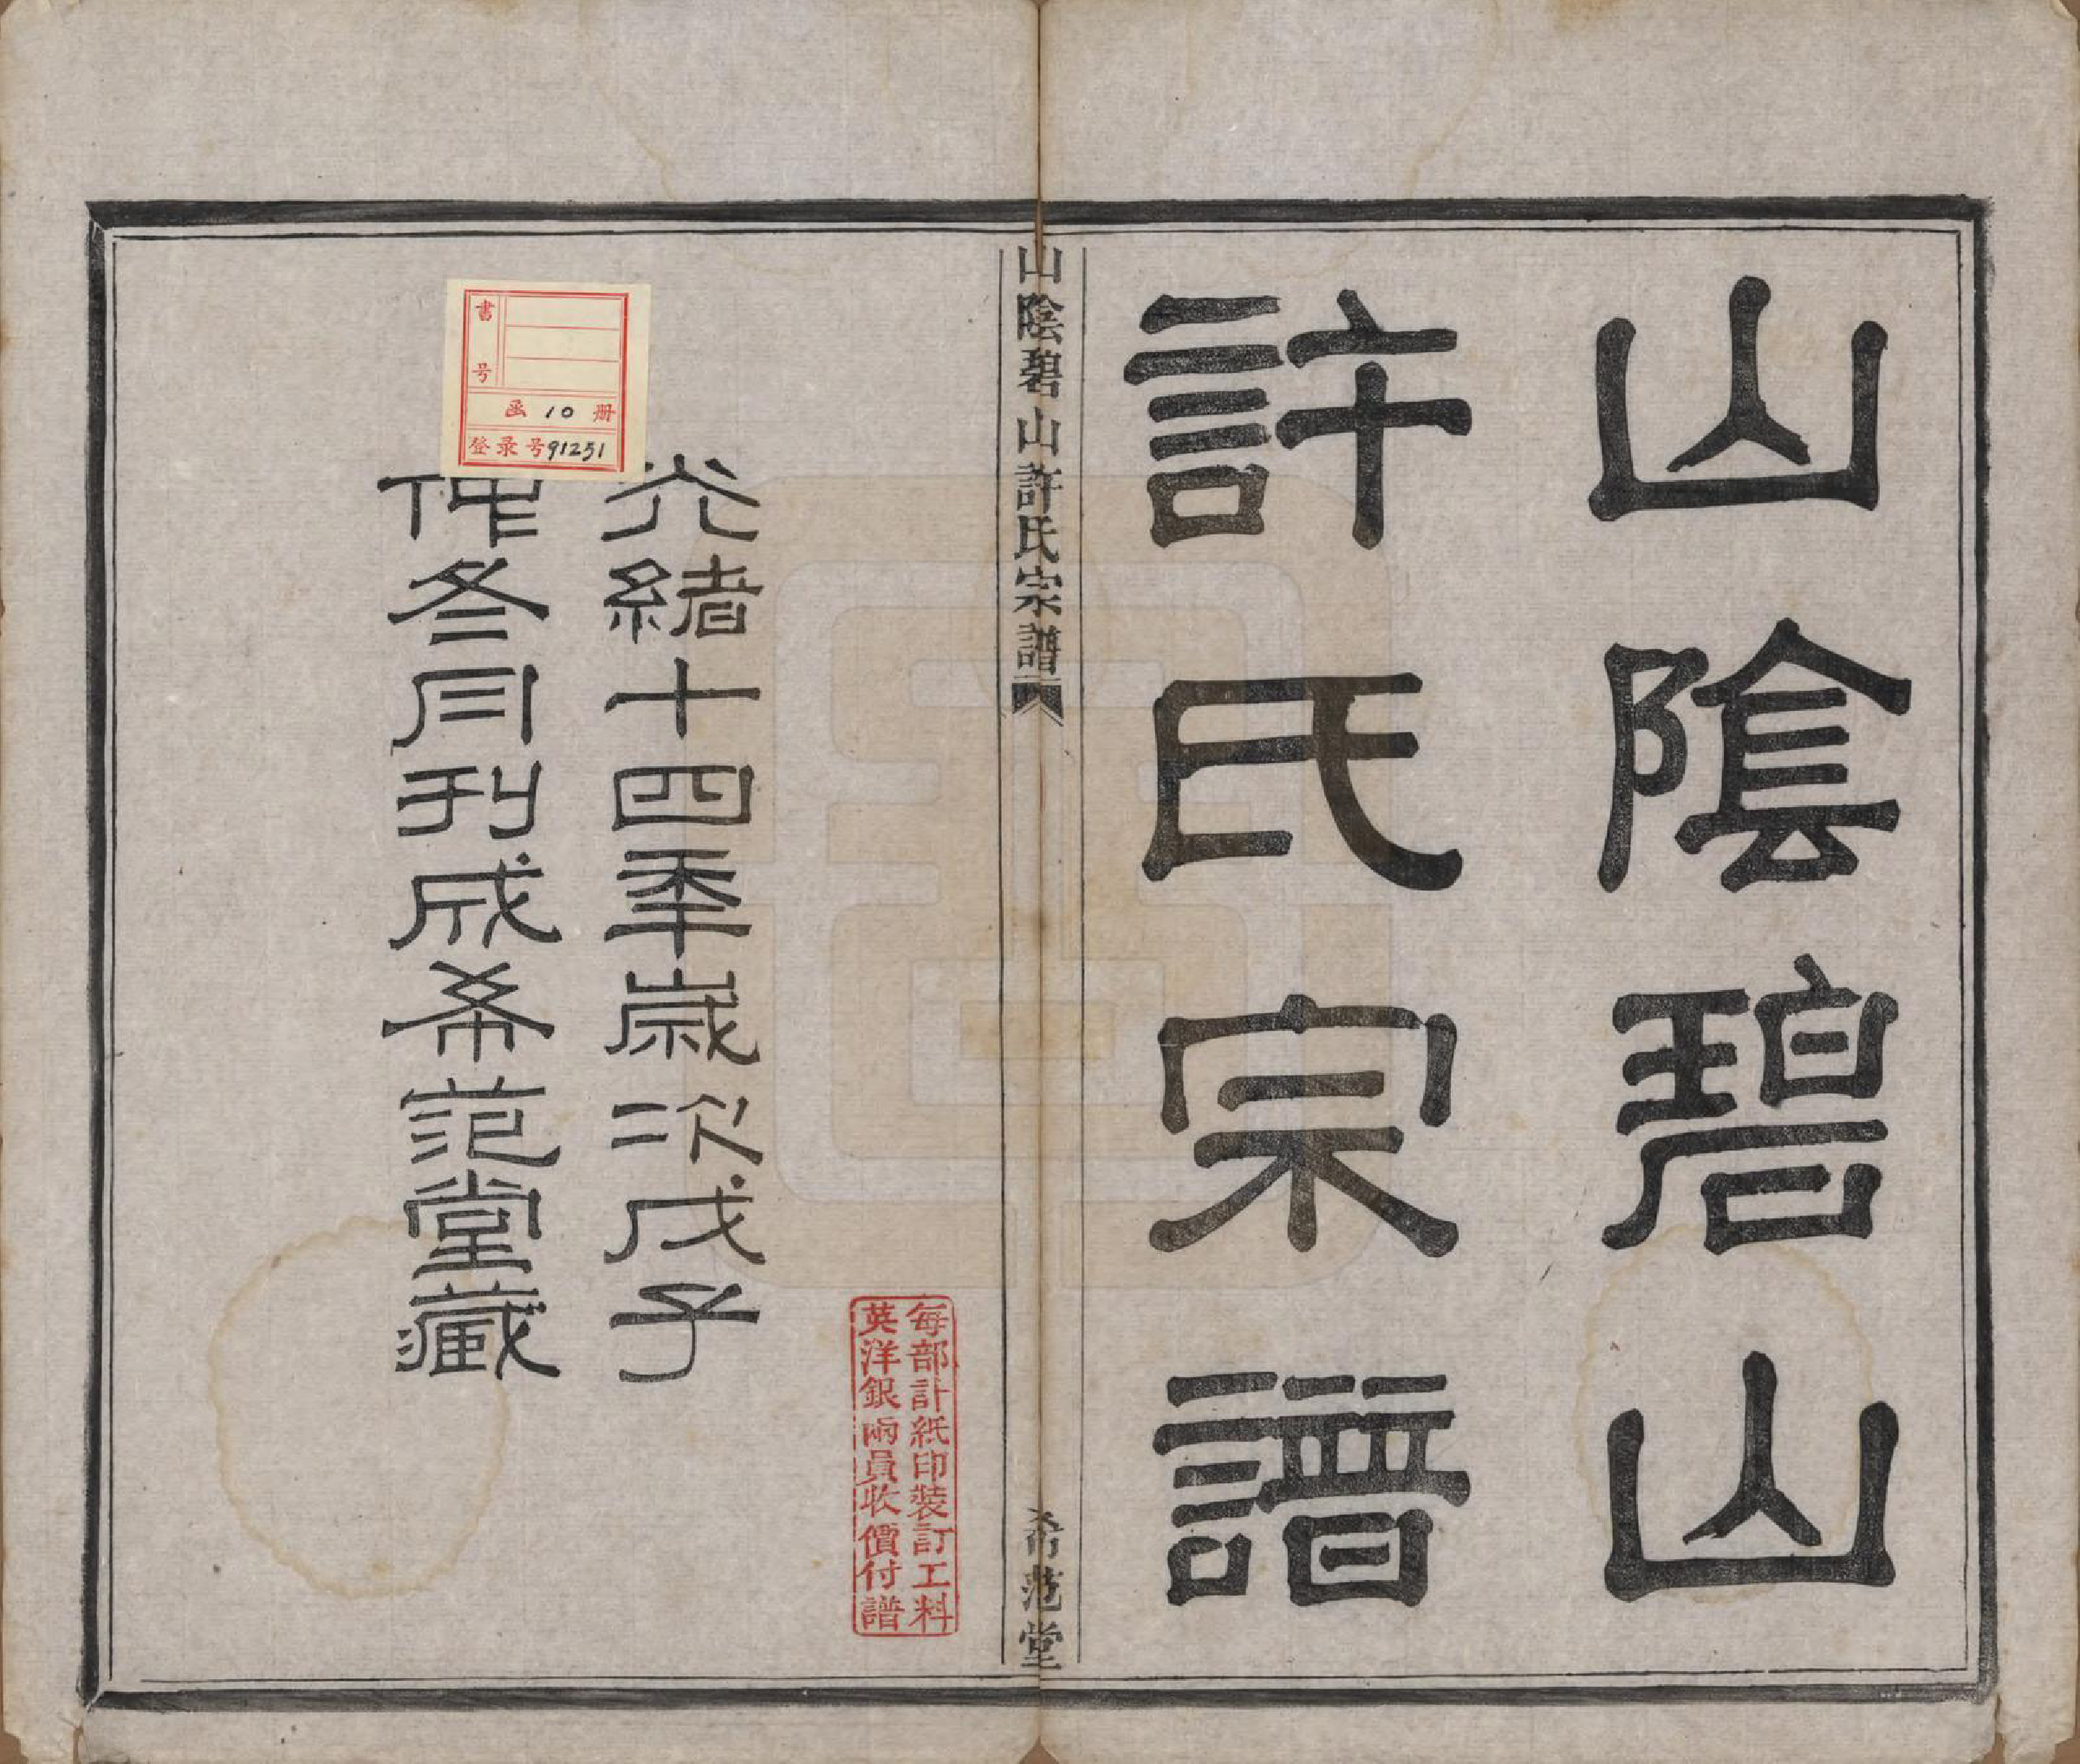 山陰碧山
許氏宗譜
山陰碧山許氏宗譜
希范堂
每部計紙印裝訂工料
英洋銀兩員收價付譜
光緒十四季歲次戊子
仲冬月刊成希范堂藏
書号
函 10 册
登录号91251